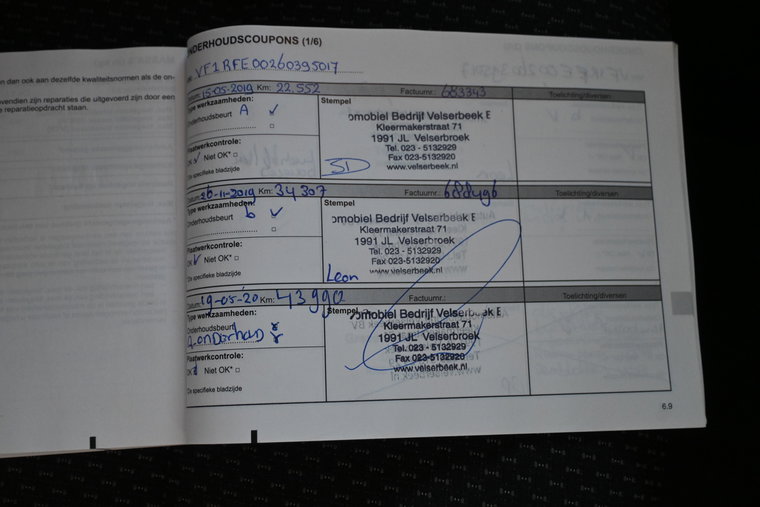 n dan ook aan dezelfde kwaliteitsnormen als de on-
vendien zijn reparaties die uitgevoerd zijn door een
e reparatieopdracht staan.
NDERHOUDSCOUPONS (1/6)
VF1RFE00260395017
Datum: 15-05-2019 Km: 22.552 Factuurnr.: 683343 Toelichting/diversen
Type werkzaamheden:
Onderhoudsbeurt A
Plaatwerkcontrole:
OK Niet OK*
Stempel
omobiel Bedrijf Velserbeek B
Kleermakerstraat 71
1991 JL Velserbroek
Tel. 023 - 5132929
Fax 023-5132920
www.velserbeek.nl
Datum: 26-11-2019 Km: 34307 Factuurnr.: Toelichting/diversen
Type werkzaamheden:
Onderhoudsbeurt b
Plaatwerkcontrole:
OK Niet OK*
*De specifieke bladzijde
Stempel
omobiel Bedrijf Velserbeek E
Kleermakerstraat 71
1991 JL Velserbroek
Tel. 023 - 5132929
Fax 023-5132920
www.velserbeek.nl
Leon
Datum: 19-05-20 Km: 43990 Factuurnr.: Toelichting/diversen
Type werkzaamheden:
Onderhoudsbeurt
A-onderhoud
Plaatwerkcontrole:
OK Niet OK*
*De specifieke bladzijde
Stempel
omobiel Bedrijf Velserbeek E
Kleermakerstraat 71
1991 JL Velserbroek
Tel. 023 - 5132929
Fax 023-5132920
www.velserbeek.nl
6.9